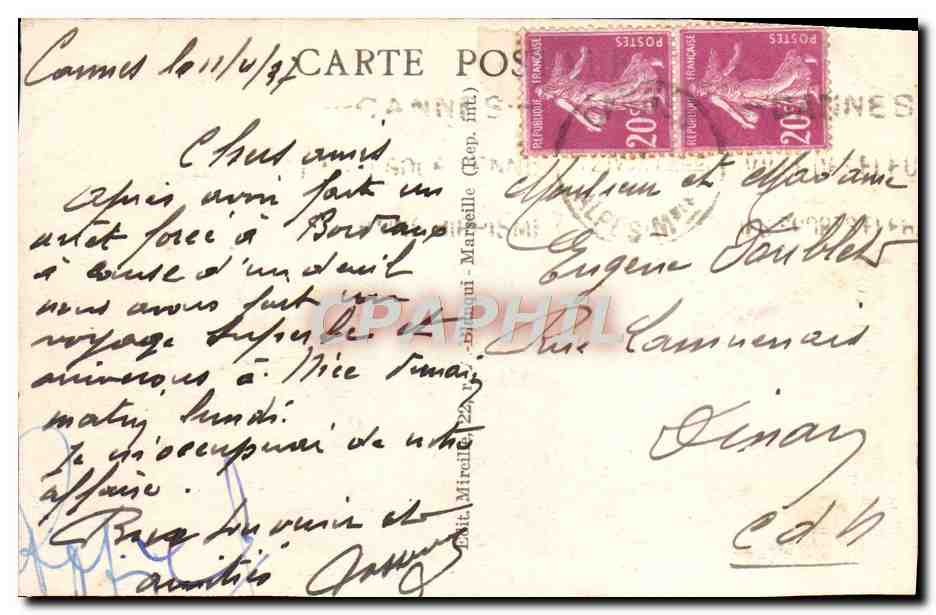 Cannes le 11/4/37
CARTE POS
Chers amis
après avoir fait un
arrêt forcé à Bordeaux
à cause d'un deuil
nous avons fait un
voyage superbe et
arriverons à Nice demain
matin lundi.
Je m'occuperai de votre
affaire.
Bon souvenir et
amitiés
Edit. Mireille, 22, r. -Blanqui - Marseille (Rep. int.)
REPUBLIQUE FRANÇAISE
POSTES
20c
REPUBLIQUE FRANÇAISE
POSTES
20c
CANNES
CANNES
ALPES-Mmes
Monsieur et Madame
Eugène
Rue Lamennais
Dinan
C d N
CPAPHIL